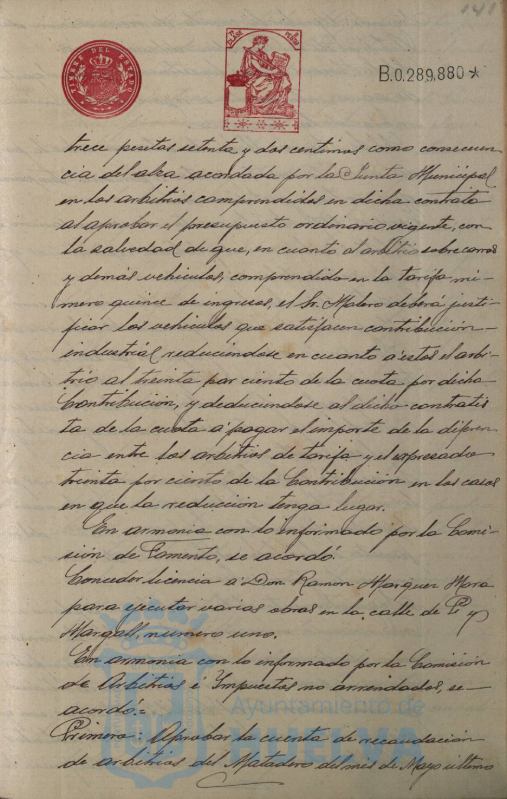 141
TIMBRE DEL ESTADO
B.0.289,880*
trece pesetas setenta y dos centimos como consecuen-
cia del alza acordada por la Junta Municipal
en los arbitrios comprendidos en dicha contrata
al aprobar el presupuesto ordinario vigente, con
la salvedad de que, en cuanto al arbitrio sobre carros
y demás vehiculos, comprendido en la tarifa nú-
mero quince de ingresos, el Sr. Malero deberá justi-
ficar los vehiculos que satisfacen contribución
industrial reduciendose en cuanto a éstos el arbi-
trio al treinta por ciento de la cuota por dicha
Contribución, y deduciendose al dicho contratis
ta de la cuota á pagar el importe de la diferen
cia entre los arbitrios de tarifa y el expresado
treinta por ciento de la Contribución en los casos
en que la reducción tenga lugar.
En armonia con lo informado por la Comi-
sión de Fomento, se acordó:
Conceder licencia á Don Ramon Marquez Mora
para ejecutar varias obras en la calle de Pi y
Margall, numero uno.
En armonia con lo informado por la Comisión
de Arbitrios é Impuestos no arrendados, se
acordó:
Primero: Aprobar la cuenta de recaudación
de arbitrios del Matadero del mes de Mayo último
Ayuntamiento de
HUELVA